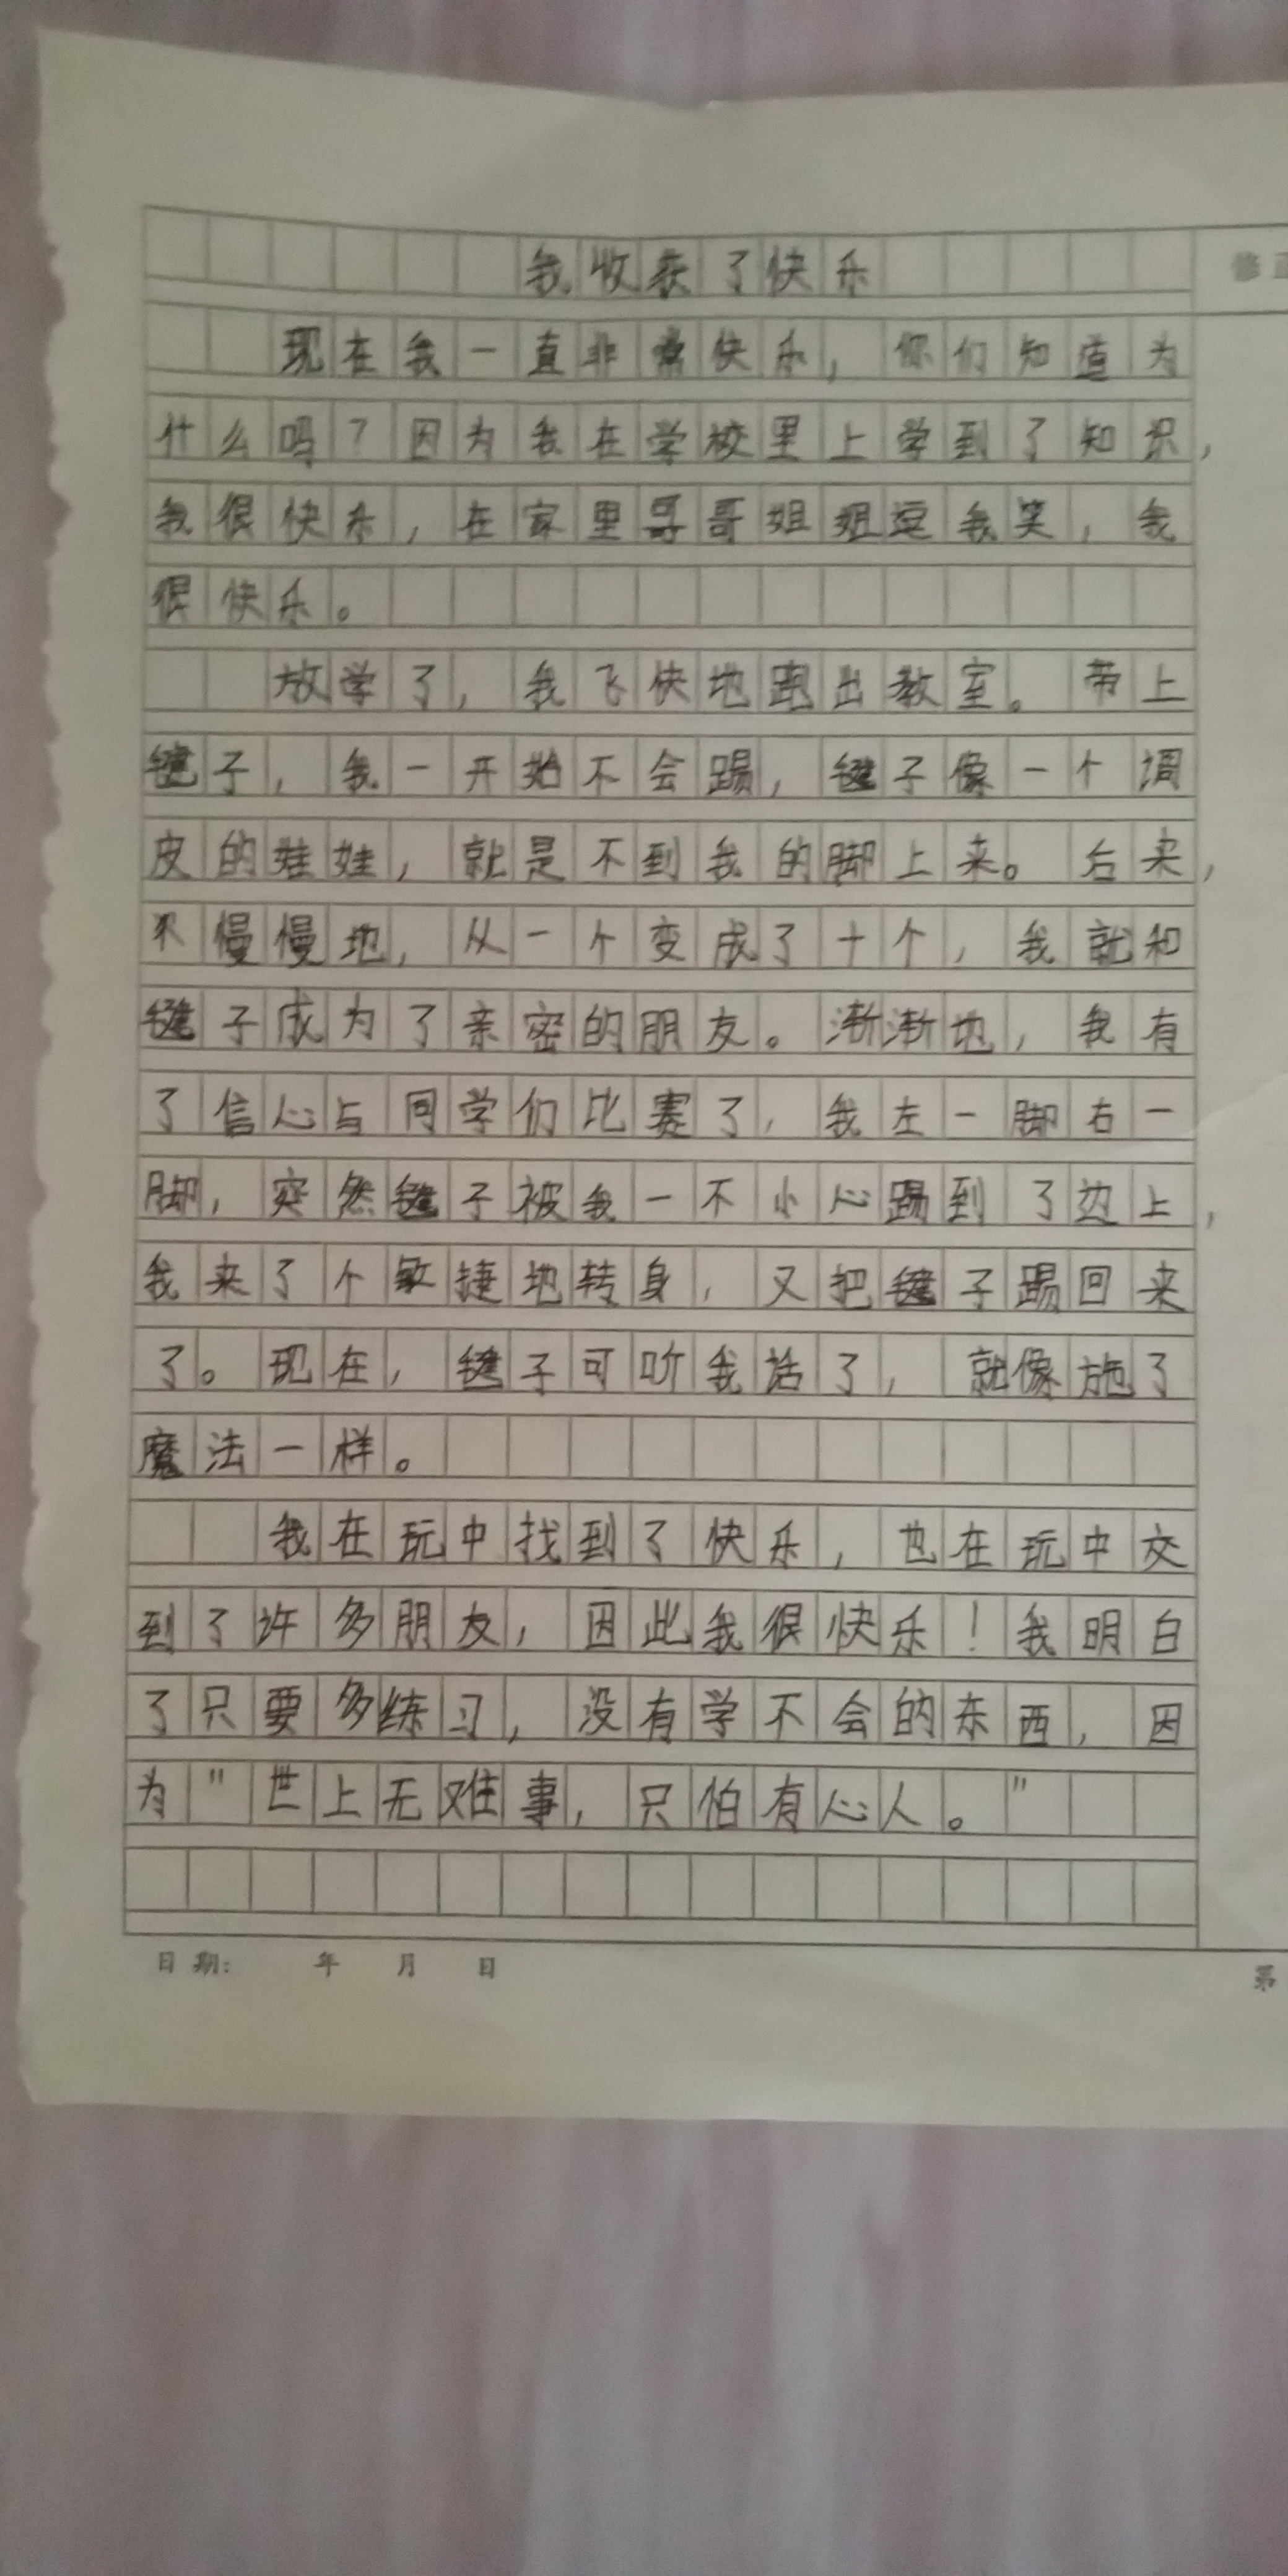 我收获了快乐
修正
现在我一直非常快乐，你们知道为
什么吗？因为我在学校里上学到了知识，
我很快乐，在家里哥哥姐姐逗我笑，我
很快乐。
放学了，我飞快地跑出教室。带上
毽子，我一开始不会踢，毽子像一个调
皮的娃娃，就是不到我的脚上来。后来，
不慢慢地，从一个变成了十个，我就和
毽子成为了亲密的朋友。渐渐地，我有
了信心与同学们比赛了，我左一脚右一
脚，突然毽子被我一不小心踢到了边上，
我来了个敏捷地转身，又把毽子踢回来
了。现在，毽子可听我话了，就像施了
魔法一样。
我在玩中找到了快乐，也在玩中交
到了许多朋友，因此我很快乐！我明白
了只要多练习，没有学不会的东西，因
为"世上无难事，只怕有心人。"
日期： 年 月 日
第